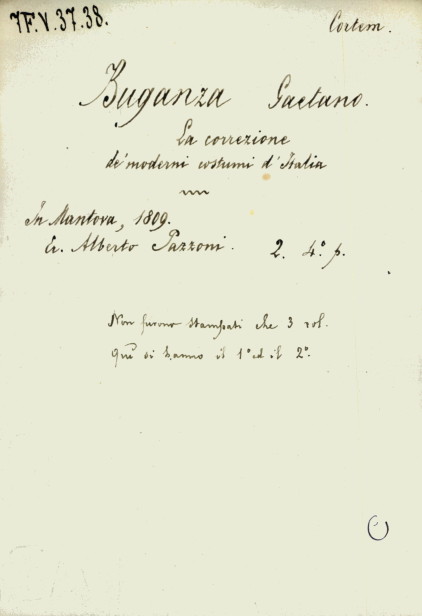 7F.V.37.38.
Cortem.
Buganza Gaetano.
La correzione
de' moderni costumi d'Italia
In Mantova, 1809.
Er. Alberto Pazzoni. 2. 4.° p.
Non furono stampati che 3 vol.
Qui si hanno il 1° ed il 2°.